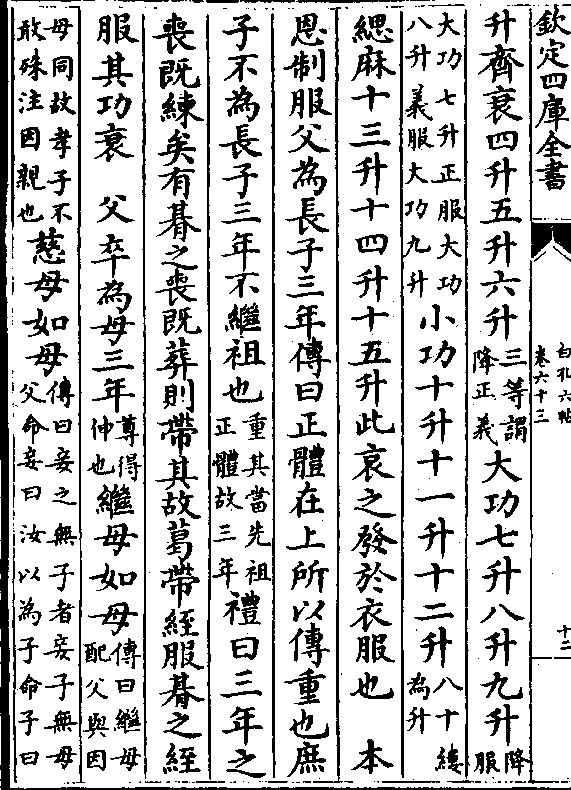 欽定四庫全書
白孔六帖
卷六十三
十二
升齊衰四升五升六升三等謂降正義大功七升八升九升降服
大功七升正服大功八升義服大功九升小功十升十一升十二升八十縷為升
緦麻十三升十四升十五升此哀之發於衣服也 本
恩制服父為長子三年傳曰正體在上所以傳重也庶
子不為長子三年不繼祖也重其當先祖正體故三年禮曰三年之
喪既練矣有朞之喪既葬則帶其故葛帶絰服朞之絰
服其功衰 父卒為母三年尊得伸也繼母如母傳曰繼母配父與因
母同故孝子不敢殊注因親也慈母如母傳曰妾之無子者妾子無母父命妾曰汝以為子命子曰